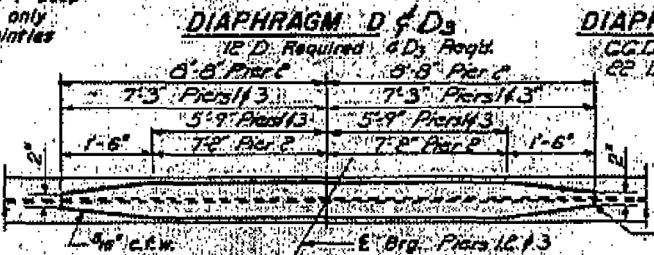 only
DIAPHRAGM D & D3
12 D Required 6 D3 Req'd.
DIAPH
22
8'-8" Pier 2 8'-8" Pier 2
7'-3" Piers 1 & 3 7'-3" Piers 1 & 3
5'-9" Piers 1 & 3 5'-9" Piers 1 & 3
1'-6" 7'-2" Pier 2 7'-2" Pier 2 1'-6"
2" 2"
5/16" c.f.w.
℄ Brg. Piers 1, 2 & 3